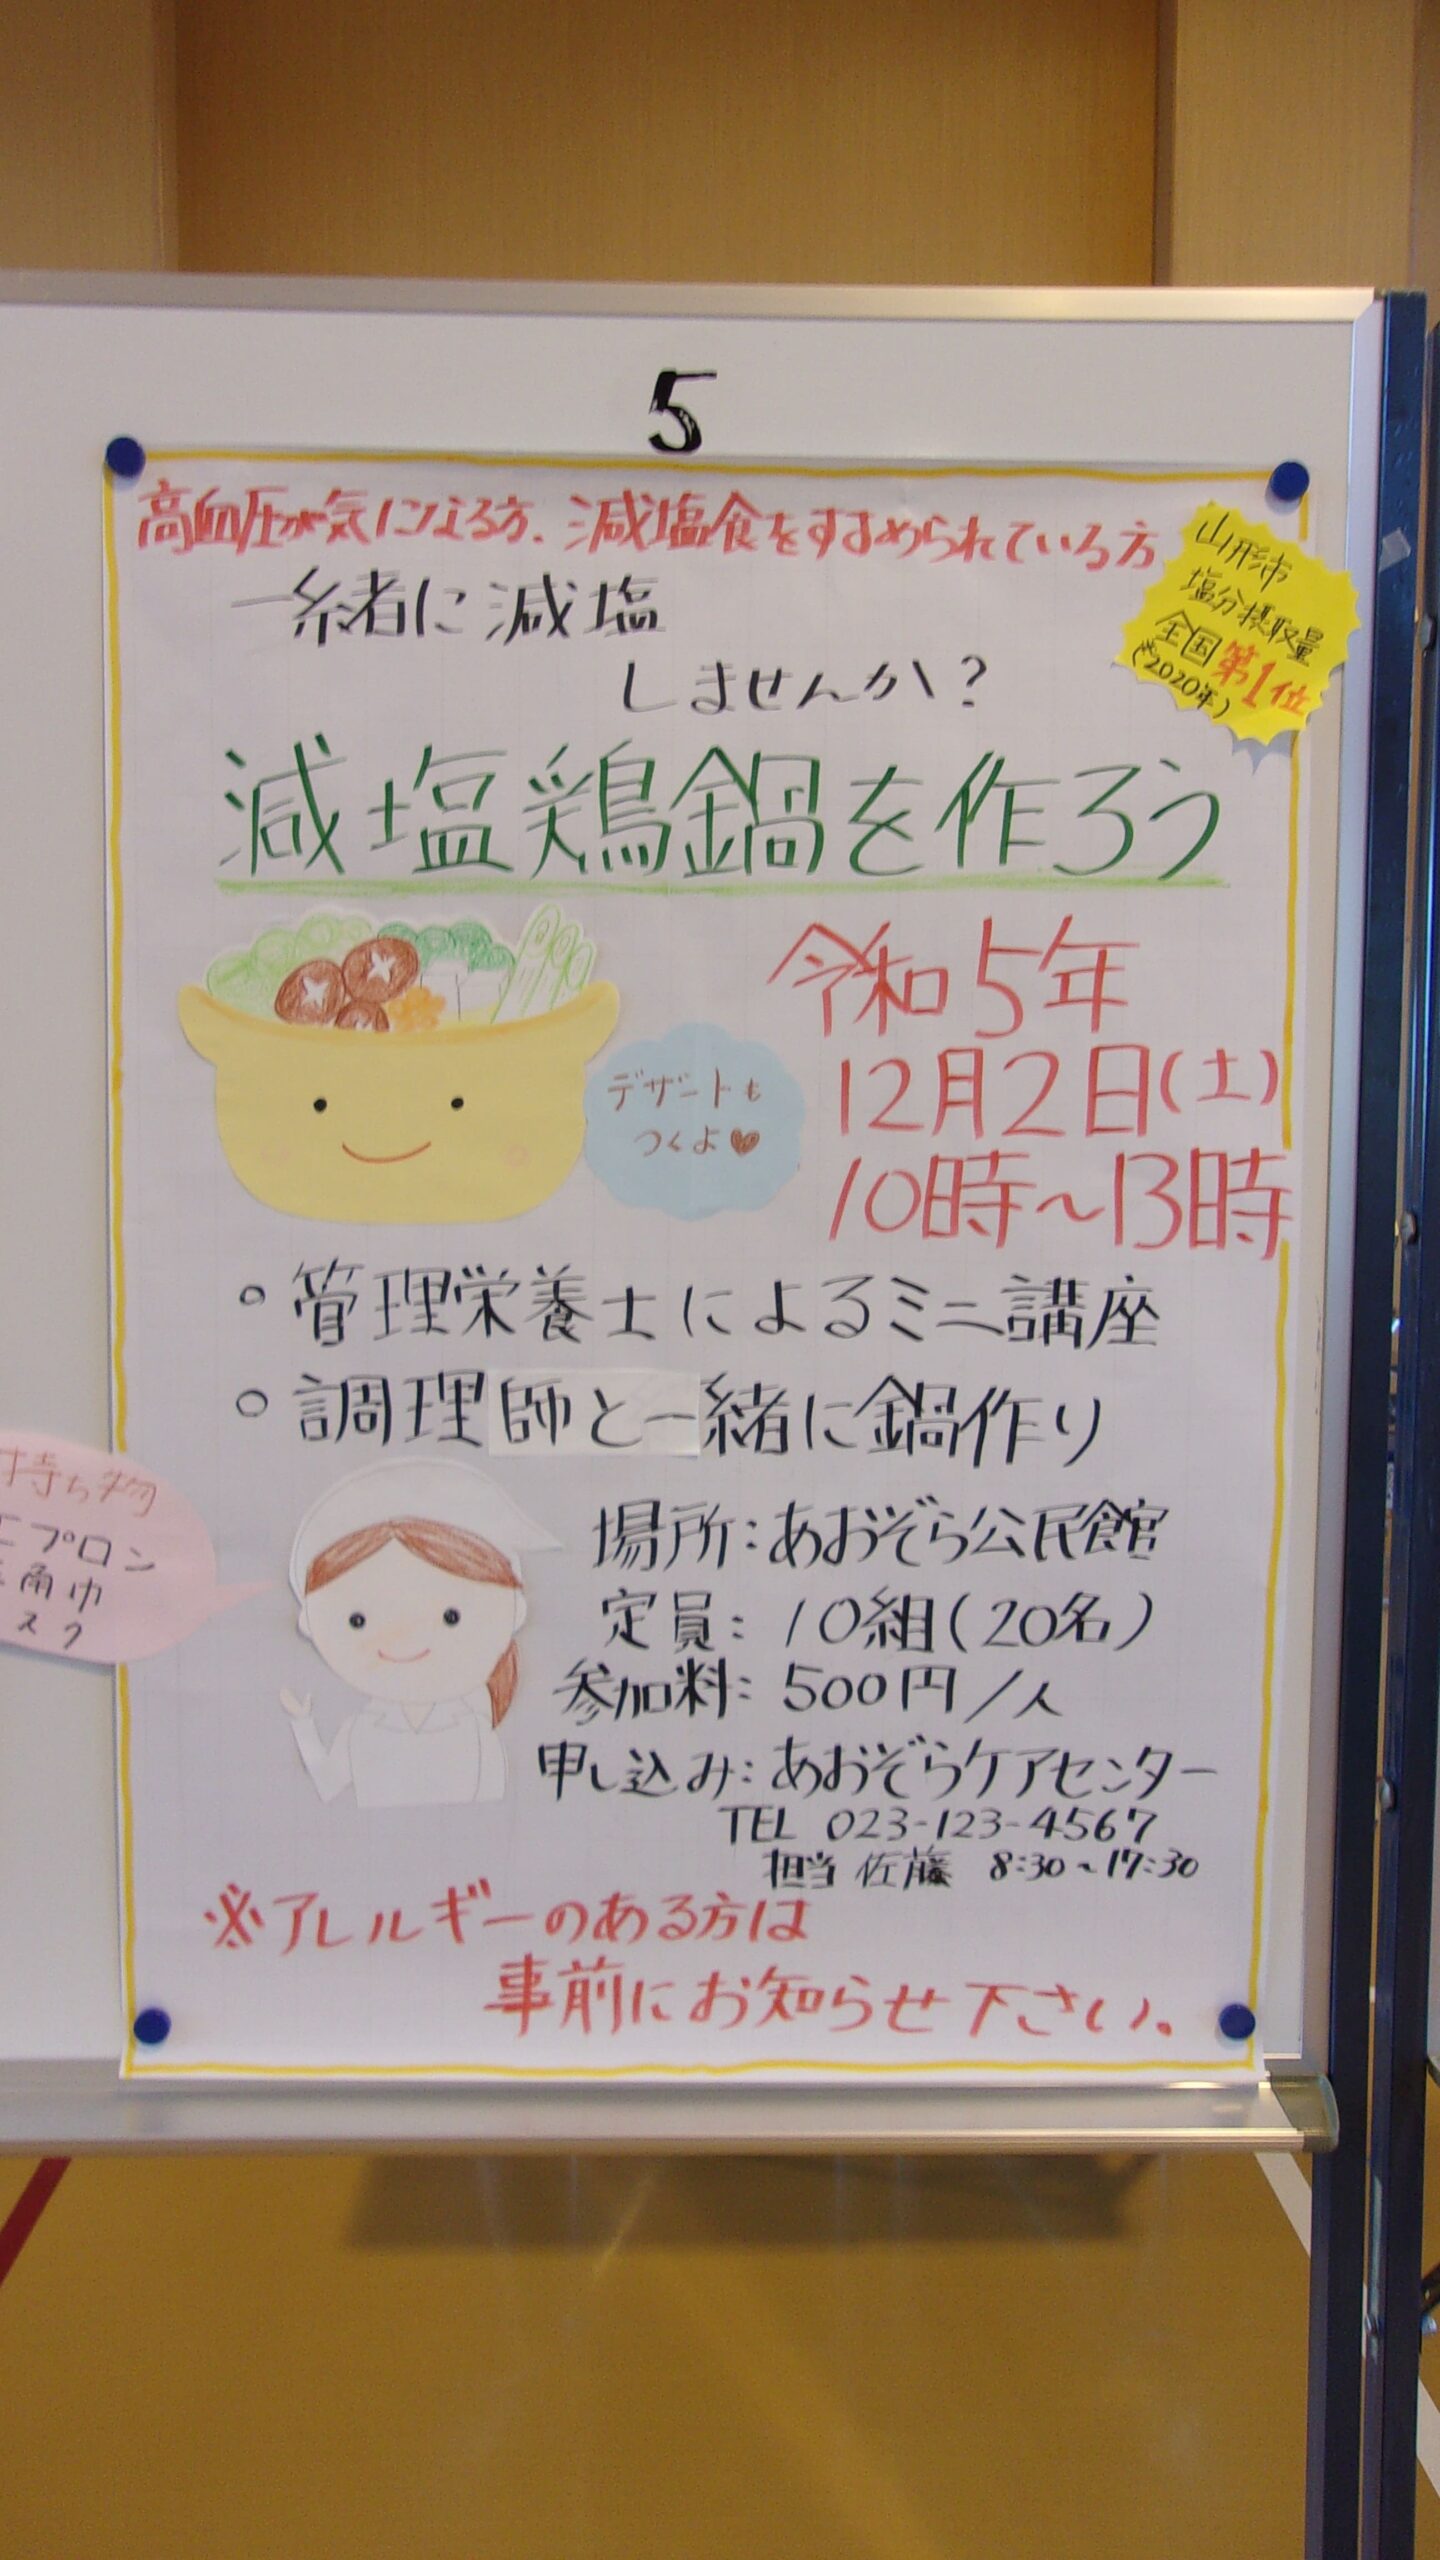 5
高血圧が気になる方、減塩食をすすめられている方
山形市
塩分摂取量
全国第1位
(※2020年)
一緒に減塩
しませんか?
減塩鶏鍋を作ろう
令和5年
12月2日(土)
10時~13時
デザートも
つくよ
○管理栄養士によるミニ講座
○調理師と一緒に鍋作り
持ち物
エプロン
角巾
スク
場所:あおぞら公民館
定員:10組(20名)
参加料:500円/人
申し込み:あおぞらケアセンター
TEL 023-123-4567
担当 佐藤 8:30~17:30
※アレルギーのある方は
事前にお知らせ下さい。